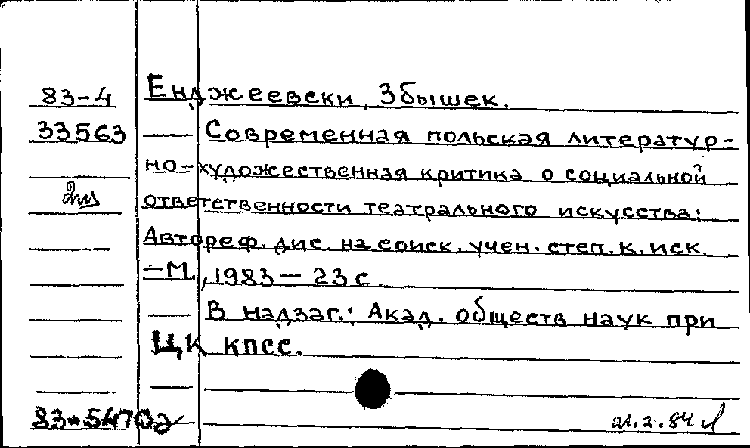 83-4 Енджеевски, Збышек.
33563 Современная польская литератур-
но-художественная критика о социальной
ответственности театрального искусства:
Автореф. дис. на соиск. учен. степ. к. иск.
-М., 1983 - 23 с.
В надзаг.: Акад. обществ наук при
ЦК КПСС.
21.2.84